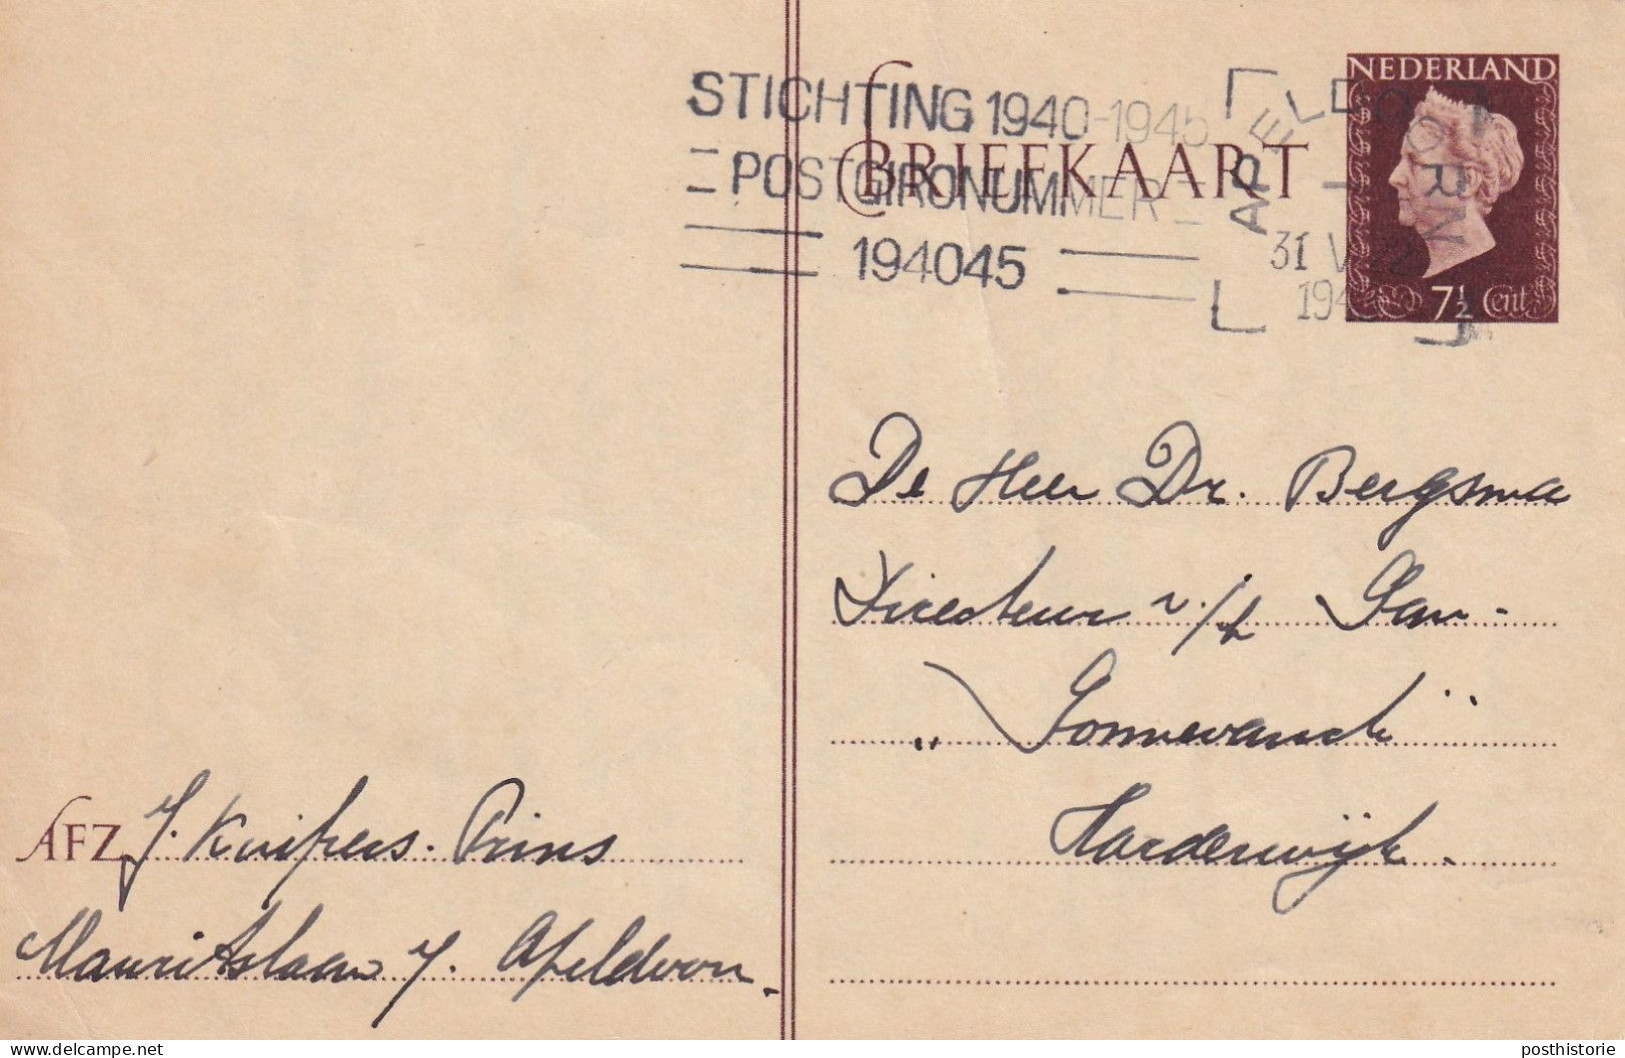 STICHTING 1940-1945
POSTGIRONUMMER
194045
APELDOORN
31 V
194
NEDERLAND
7½ Cent
BRIEFKAART
De Heer Dr. Bergsma
Directeur v/h San-
"Sonnevanck"
Harderwijk.
AFZ J. Kuipers-Prins
Mauritslaan 7. Apeldoorn.
posthistorie